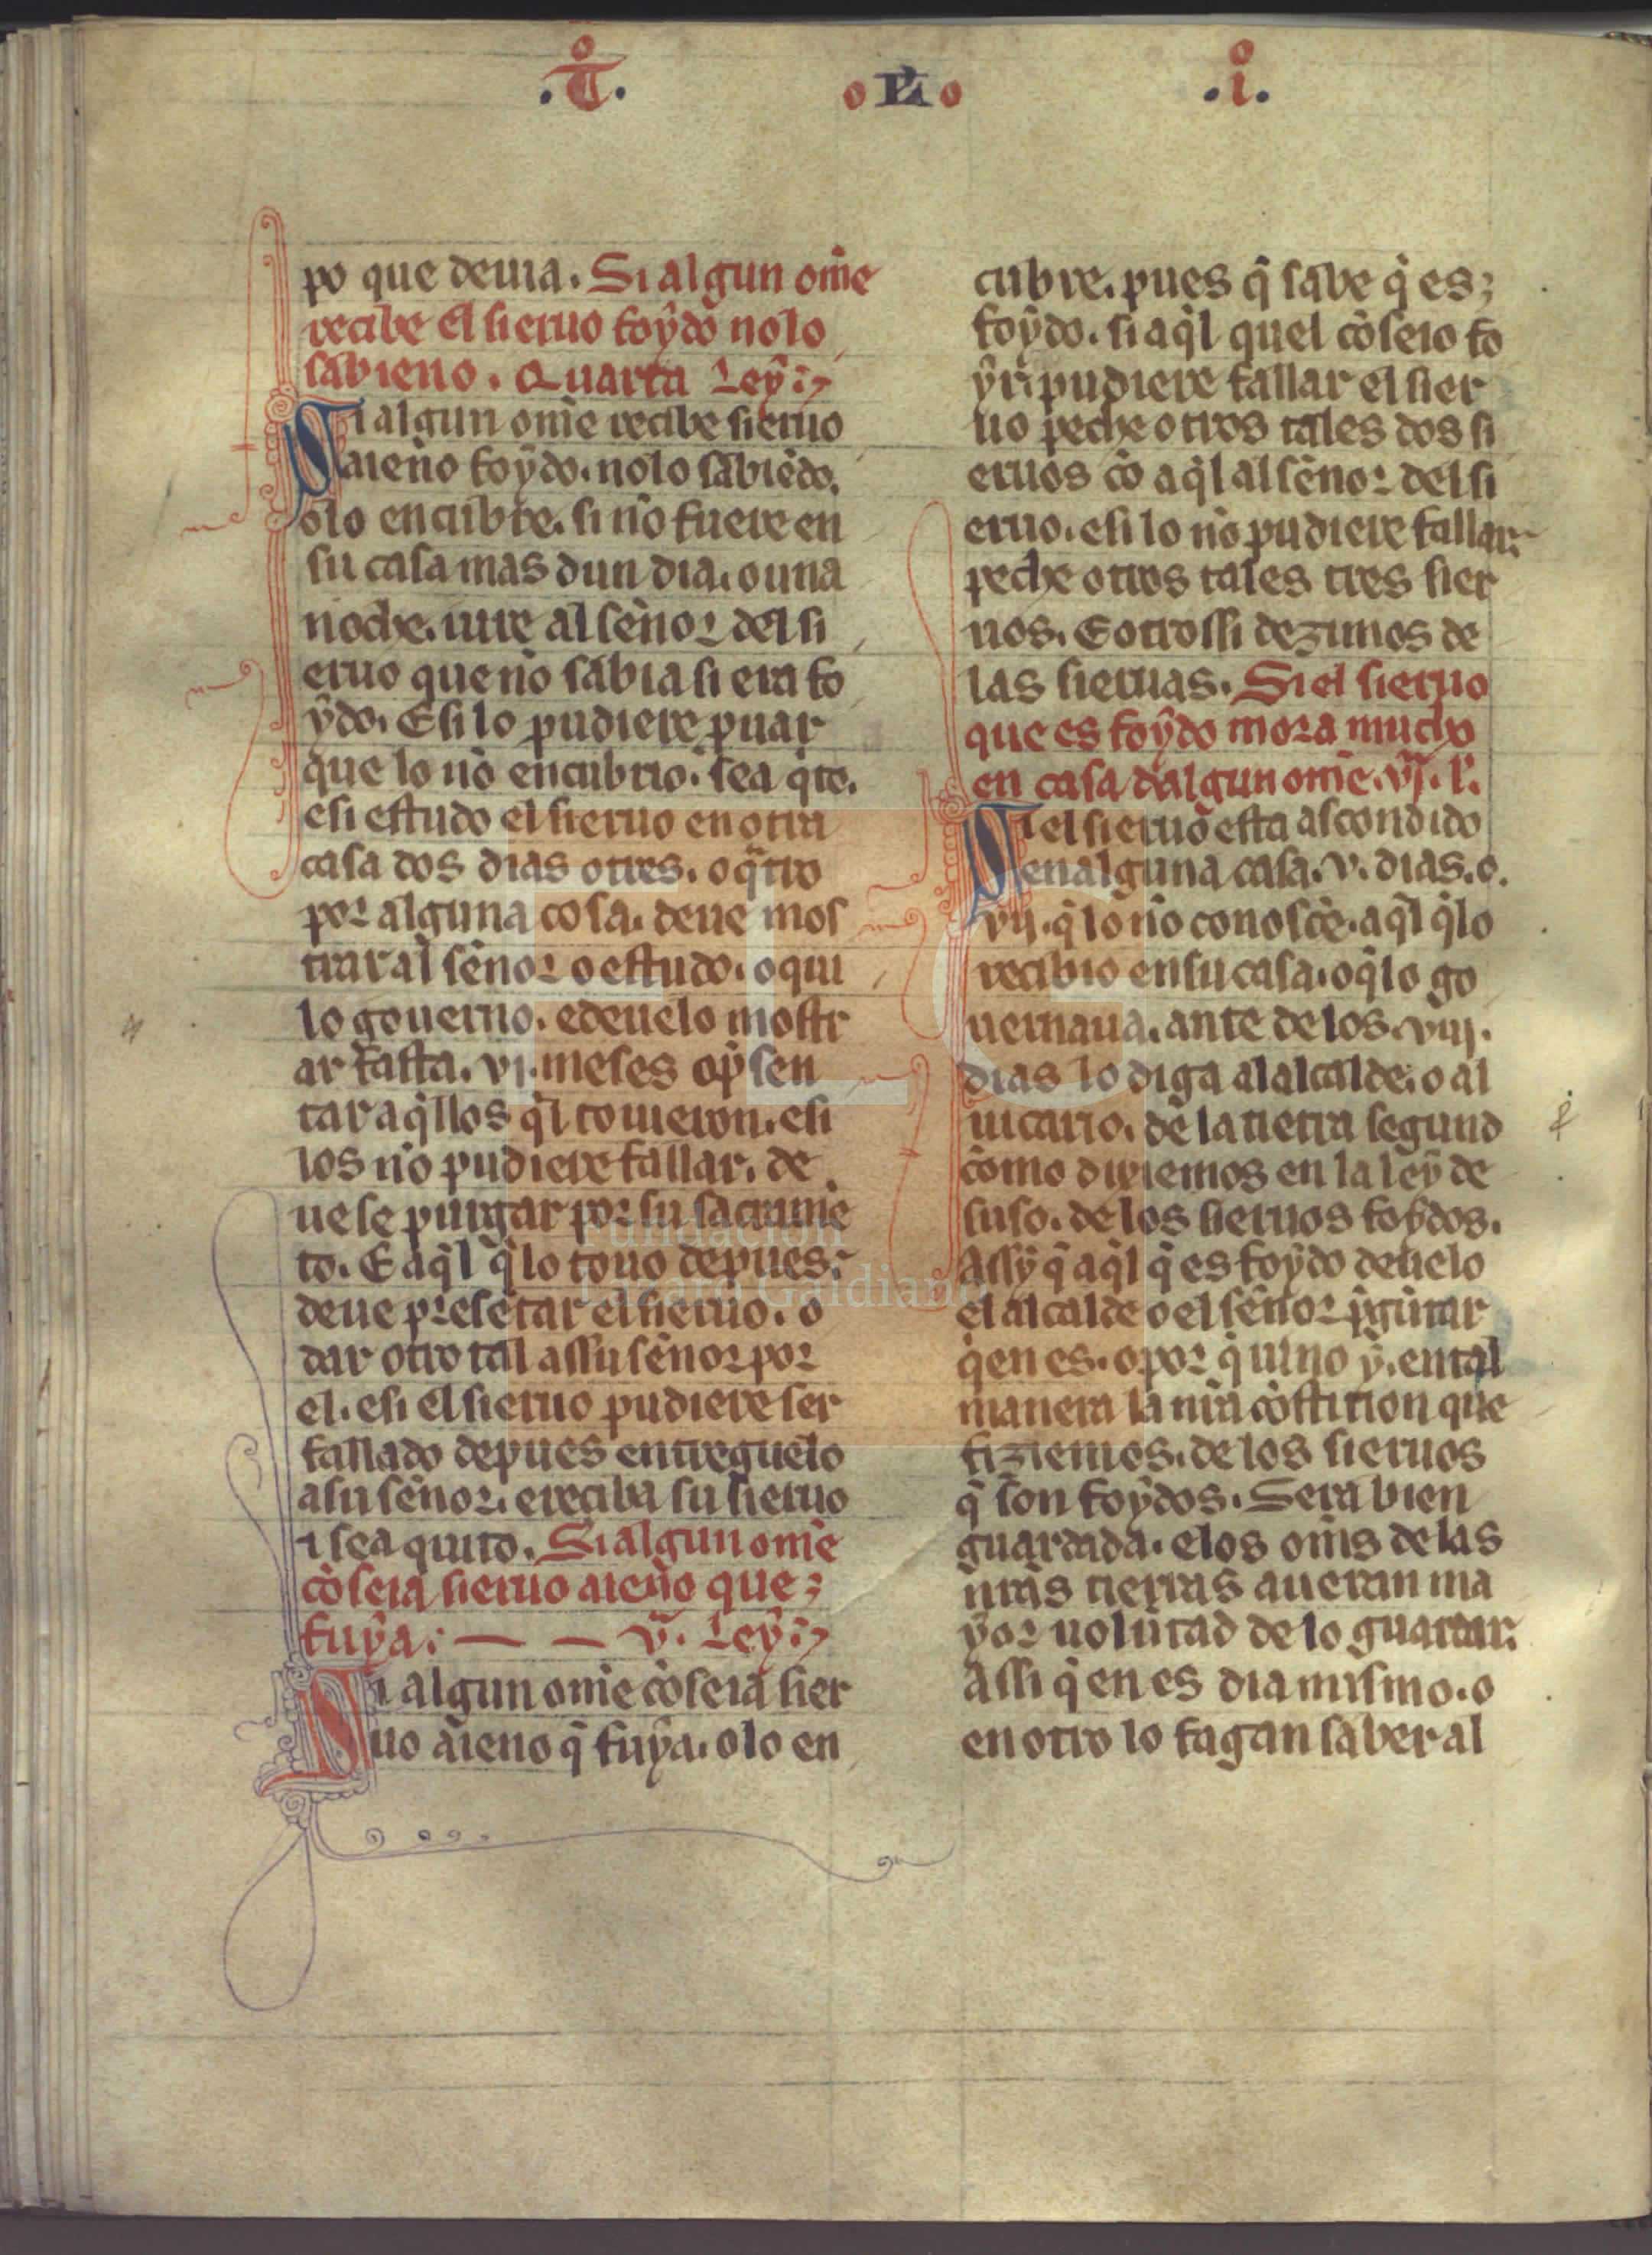 .T̊. o IX o .i̊.
po que deuia. Si algun om̄e
recibe el sieruo foydo nolo
sabieno. Quarta Ley
Si algun om̄e recibe sieruo
aieno foydo. nolo sabiēdo.
olo encubre. si nō fuere en
su casa mas dun dia. o una
noche. iure al sēnor del si
eruo que nō sabia si era fo
ydo. E si lo pudiere puar
que lo nō encubrio. sea q̄to.
e si estudo el sieruo en otra
casa dos dias o tres. o q̄tro
por alguna cosa. deue mos
trar al sēnor o estudo. o qui
lo gouerno. e deuelo mostr
ar fasta. vi. meses o p̄sen
tar aq̄llos q̄l touieron. e si
los nō pudiere fallar. de
ue se purgar por su sacramē
to. E aq̄l q̄ lo touo depues.
deue presētar el sieruo. o
dar otro tal assu sēnor por
el. e si el sieruo pudiere ser
fallado depues entreguelo
asu sēnor. e reciba su sieruo
⁊ sea quito. Si algun om̄e
cōseia sieruo aieno que
fuya. — — v. Ley
Si algun om̄e cōseia sier
uo aieno q̄ fuya. olo en
cubre. pues q̄ sabe q̄ es
foydo. si aq̄l quel cōseio fo
yr pudiere fallar el sier
uo peche otros tales dos si
eruos cō aq̄l al sēnor del si
eruo. e si lo nō pudiere fallar
peche otros tales tres sier
uos. E otrossi dezimos de
las sieruas. Si el sieruo
que es foydo mora mucho
en casa dalgun om̄e. vj. l̄.
Si el sieruo esta ascondido
en alguna casa. v. dias. o.
vij. q̄ lo nō conoscē. aq̄l q̄ lo
recibio en su casa. o q̄ lo go
uernaua. ante de los. viij.
dias lo diga al alcalde. o al
uicario. de la tierra segund
como dixiemos en la ley de
suso. de los sieruos foydos.
Assy q̄ aq̄l q̄ es foydo deuelo
el alcalde o el sēnor p̄gūtar
q̄en es. o por q̄ uino y. en tal
manera la nr̄a cōstitucion que
fiziemos. de los sieruos
q̄ son foydos. Sera bien
guardada. e los om̄s de las
nr̄as tierras aueran ma
yor uolūtad de lo guardar.
Assi q̄ en es dia mismo. o
en otro lo fagan saber al
FLG
Fundación
Lázaro Galdiano